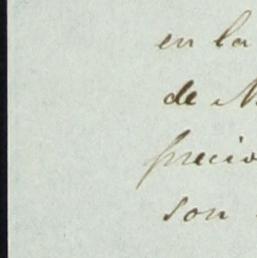 en la
de
precio
son